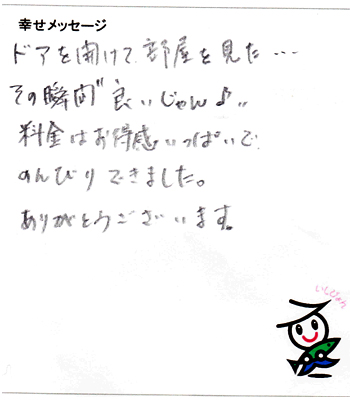 幸せメッセージ
ドアを開けて、部屋を見た…
その瞬間"良いじゃん♪"
料金はお得感いっぱいで、
のんびりできました。
ありがとうございます。